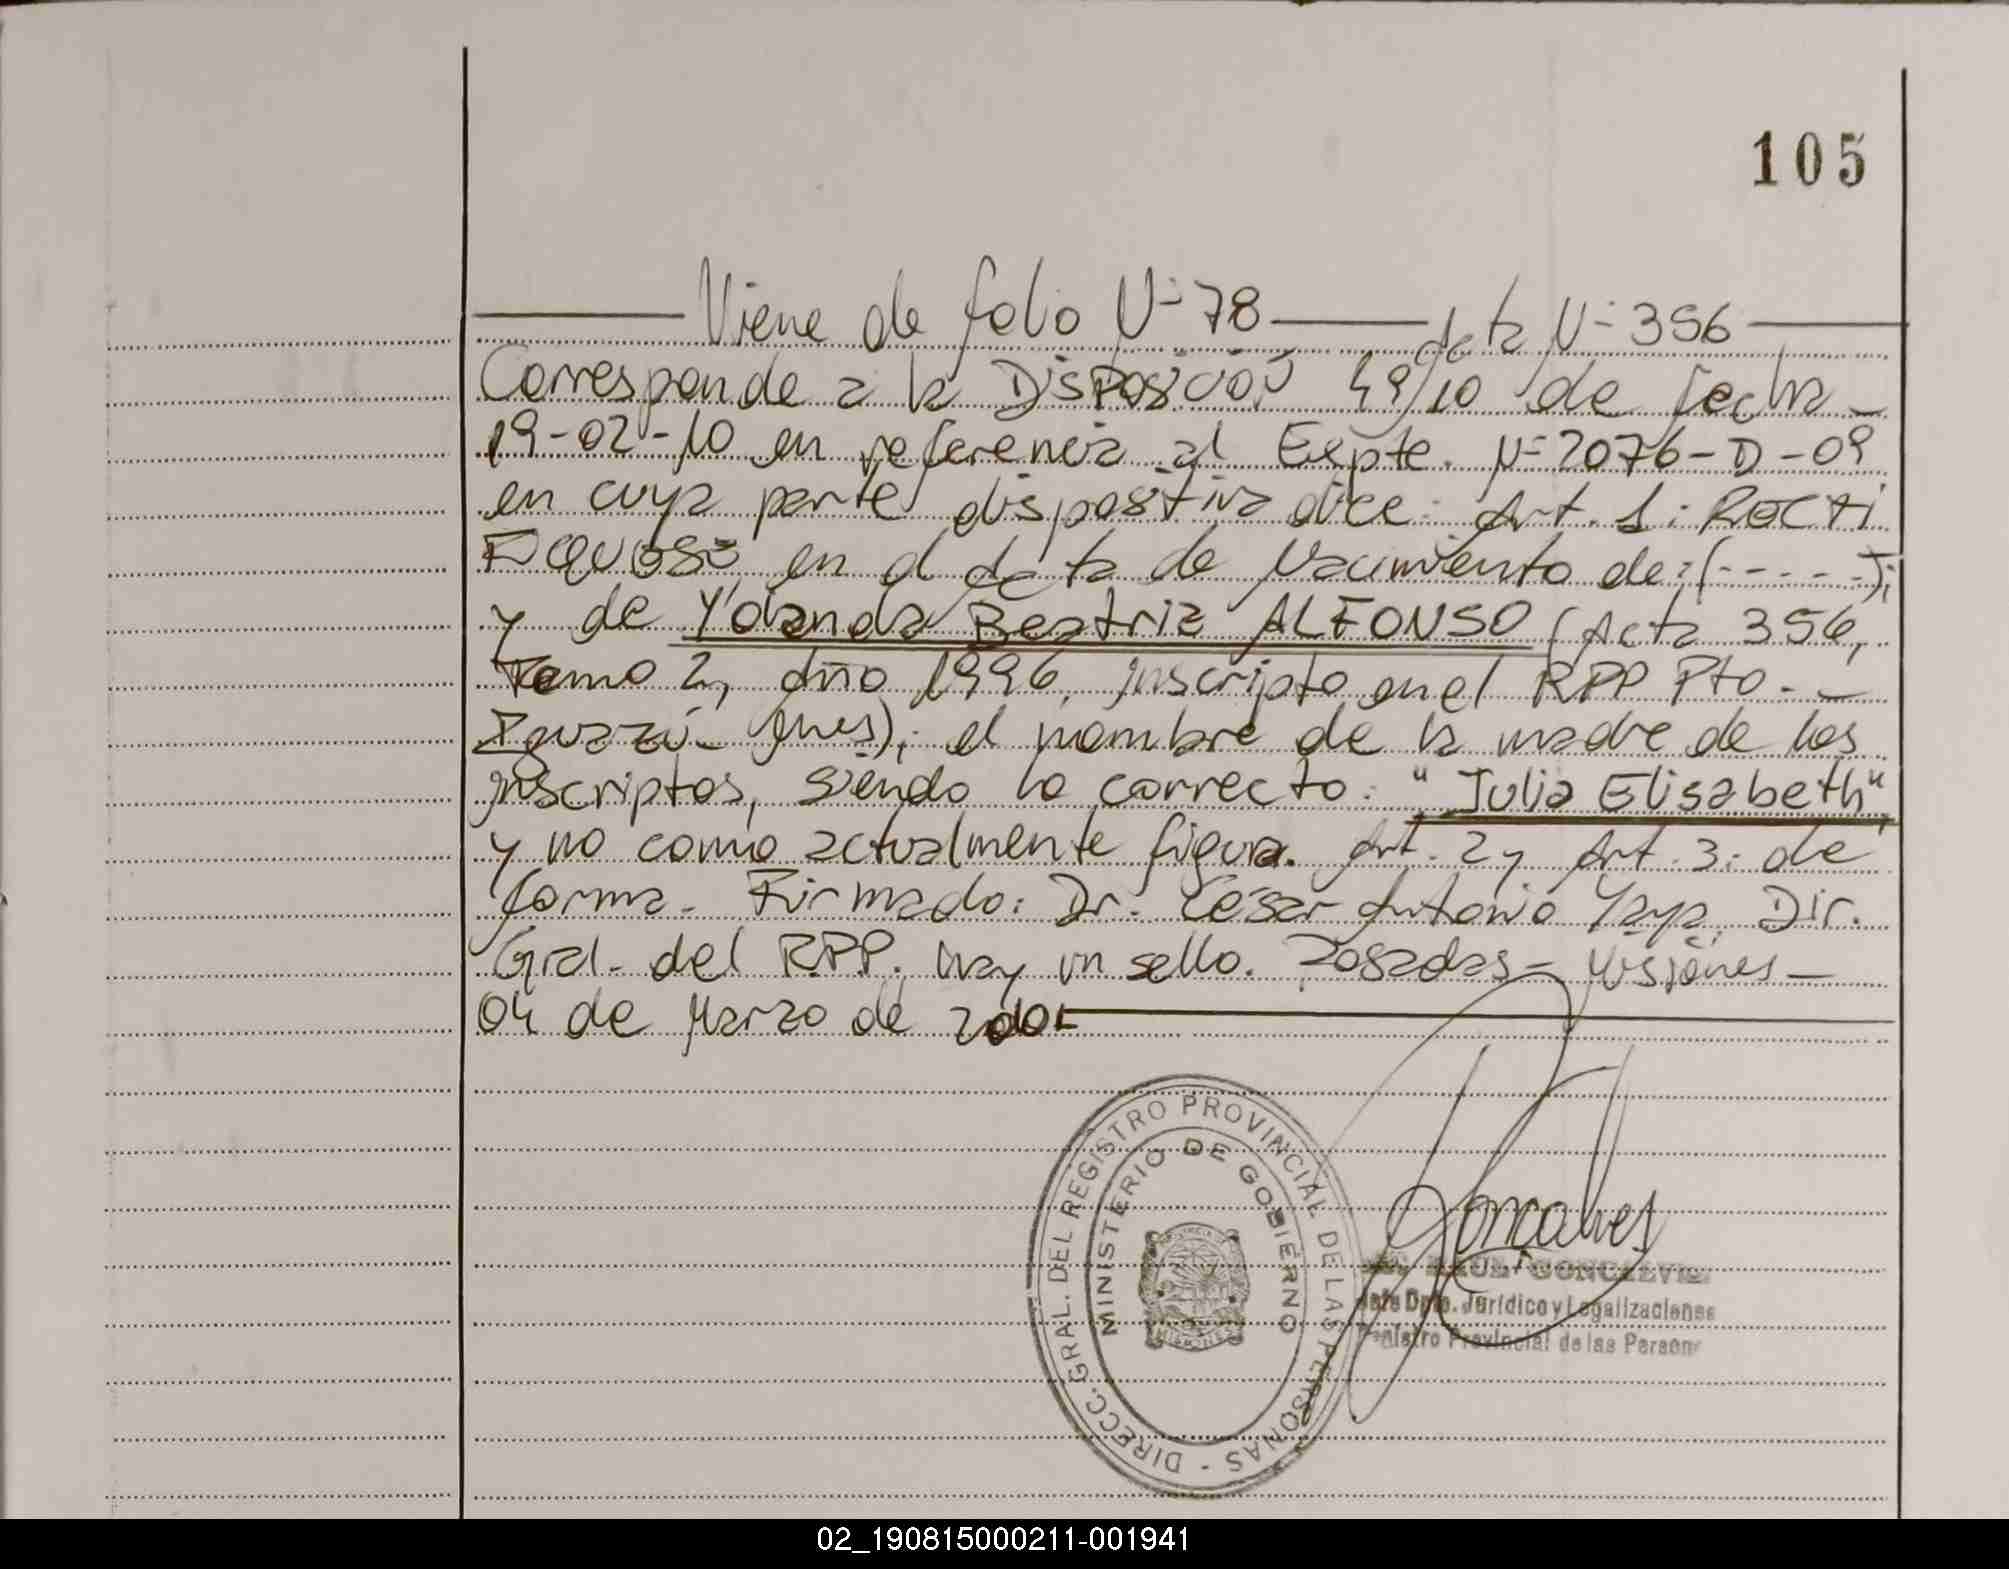 105
Viene de folio N-78 Acta N-356
Corresponde a la Disposición 49/10 de fecha -
19-02-10 en referencia al Expte. N-2076-D-09
en cuya parte dispositiva dice: Art. 1: RECTI
FIQUESE en el Acta de Nacimiento de: (- - - - -);
y de Yolanda Beatriz ALFONSO (Acta 356,
Tomo 2, Año 1996, inscripto en el RPP Pto. -
Iguazú - Mnes); el nombre de la madre de los
inscriptos, siendo lo correcto: "Julia Elisabeth",
y no como actualmente figura. Art. 2 y Art. 3: de
forma. Firmado: Dr. César Antonio Yaya, Dir.
Gral. del R.P.P. hay un sello. Posadas - Misiones -
04 de Marzo de
DIRECC. GRAL. DEL REGISTRO PROVINCIAL DE LAS PERSONAS -
MINISTERIO DE GOBIERNO
MISIONES
Goncalves
RAUL GONCALVES
Jefe Dpto. Jurídico y Legalizaciones
Registro Provincial de las Person
02_190815000211-001941